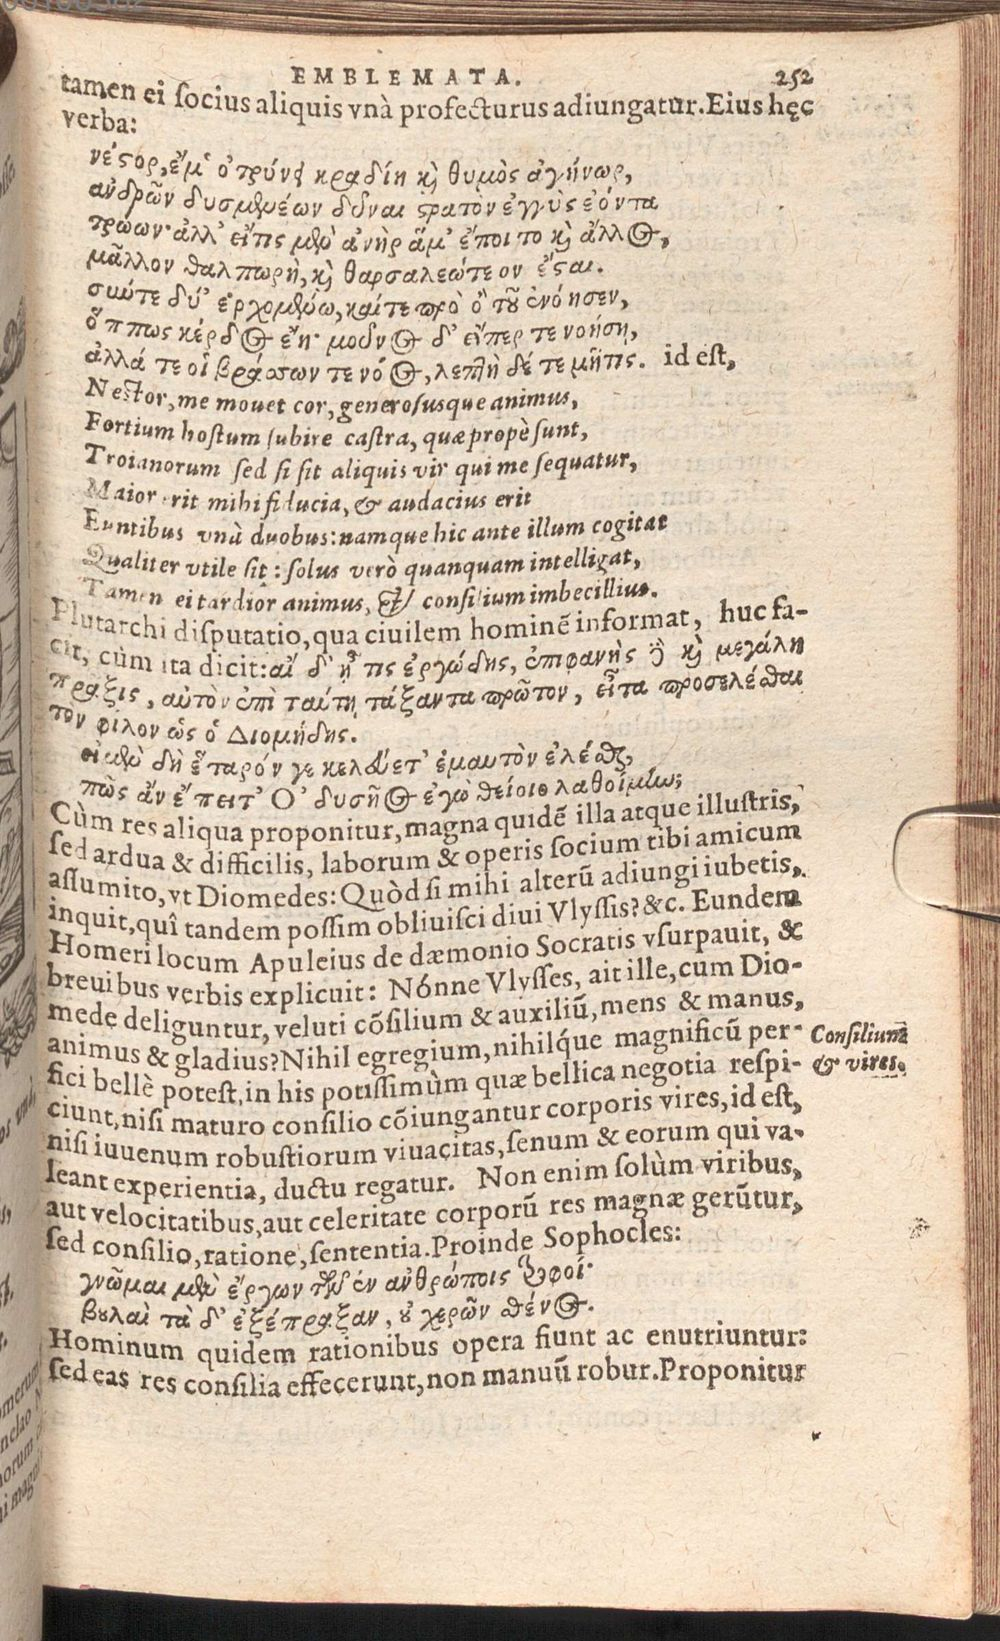 EMBLEMATA. 252
tamen ei ſocius aliquis vnà profecturus adiungatur. Eius hęc
verba:
νέςορ, ἔμ' ὀτρύνει κραδίη κ̀ θυμὸς ἀγήνωρ,
ἀνδρῶν δυσμενέων δῦναι ςρατὸν ἐγγὺς ἐόντα
τρώων· ἀλλ' εἴ τις μοὶ ἀνὴρ ἅμ' ἕποιτο κ̀ ἄλλος,
μᾶλλον θαλπωρὴ, κ̀ θαρσαλεώτεον ἔςαι.
σύν τε δύ' ἐρχομένω, καί τε πρὸ ὃ τοῦ ἐνόησεν,
ὅππως κέρδος ἔη· μοῦνος δ' εἴπερ τε νοήσῃ,
ἀλλά τε οἱ βράσσων τε νόος, λεπτὴ δέ τε μῆτις. id eſt,
Neſtor, me mouet cor, generoſusque animus,
Fortium hoſtum ſubire caſtra, quæ propè ſunt,
Troianorum ſed ſi ſit aliquis vir qui me ſequatur,
Maior erit mihi fiducia, & audacius erit
Euntibus vnà duobus: namque hic ante illum cogitat
Qualiter vtile ſit: ſolus verò quanquam intelligat,
Tamen ei tardior animus, & conſilium imbecillius.
Plutarchi diſputatio, qua ciuilem hominẽ informat, huc fa-
cit, cùm ita dicit: αἱ δ' ᾖ τις ἐργώδης, ἐπιφανὴς ἢ κ̀ μεγάλη
πρᾶξις, αὑτὸν ἐπὶ ταύτῃ τάξαντα πρῶτον, εἶτα προσελέσθαι
τὸν φίλον ὡς ὁ Διομήδης.
εἰ μὲν δὴ ἕταρόν γε κελεύετ' ἐμαυτὸν ἑλέσθαι,
πῶς ἂν ἔπειτ' Ο'δυσῆος ἐγὼ θείοιο λαθοίμην;
Cùm res aliqua proponitur, magna quidẽ illa atque illuſtris,
ſed ardua & difficilis, laborum & operis ſocium tibi amicum
aſſumito, vt Diomedes: Quòd ſi mihi alterũ adiungi iubetis,
inquit, quî tandem poſſim obliuiſci diui Vlyſſis? &c. Eundem
Homeri locum Apuleius de dæmonio Socratis vſurpauit, &
breuibus verbis explicuit: Nónne Vlyſſes, ait ille, cum Dio-
mede deliguntur, veluti cõſilium & auxiliũ, mens & manus,
animus & gladius? Nihil egregium, nihilq́ue magnificũ per-
fici bellè poteſt, in his potiſſimùm quæ bellica negotia reſpi-
ciunt, niſi maturo conſilio cõiungantur corporis vires, id eſt,
niſi iuuenum robuſtiorum viuacitas, ſenum & eorum qui va-
leant experientia, ductu regatur. Non enim ſolùm viribus,
aut velocitatibus, aut celeritate corporũ res magnæ gerũtur,
ſed conſilio, ratione, ſententia. Proinde Sophocles:
γνῶμαι μὲν ἔργων τῶν ἐν ἀνθρώποις τροφοί·
βουλαὶ τὰ δ' ἐξέπραξαν, οὐ χερῶν σθένος.
Hominum quidem rationibus opera fiunt ac enutriuntur:
ſed eas res conſilia effecerunt, non manuũ robur. Proponitur
Conſilium
& vires.